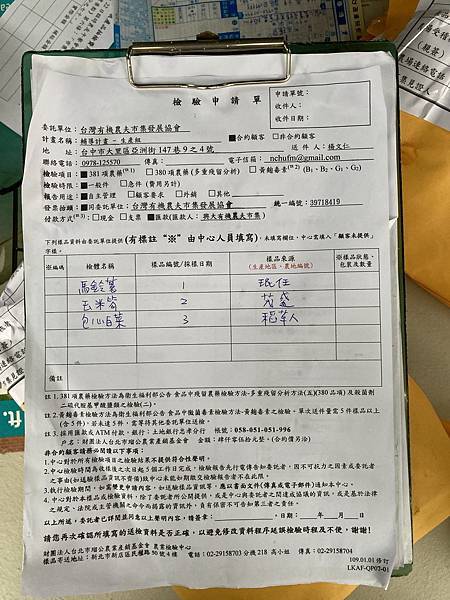 檢驗申請單
申請單號：
收件人：
收件日期：
委託單位：台灣有機農夫市集發展協會
計畫名稱：輔導計畫 - 生產組 ■合約顧客 □非合約顧客
地 址：台中市大里區亞洲街147巷9之4號 送 件 人：楊文仁
聯絡電話：0978-125570 傳真： 電子信箱：nchufm@gmail.com
檢驗項目：■381項農藥(※1) □380項農藥(多重殘留分析) □黃麴毒素(※2) (B₁、B₂、G₁、G₂)
檢驗時限：■一般件 □急件 (費用另計)
報告用途：■自主管理 □顧客要求 □外銷 □其他
發票抬頭：■同委託單位：台灣有機農夫市集發展協會 統一編號：39718419
付款方式(※3)：□現金 □支票 ■匯款(匯款人：興大有機農夫市集)
下列樣品資料由委託單位提供(有標註"※"由中心人員填寫)，未填寫欄位，中心當填入「顧客未提供」
字樣。
※編碼 檢體名稱 樣品編號/採樣日期 樣品來源(生產地區、農地編號) ※樣品狀態、包裝及數量
馬鈴薯 1 珉任
玉米筍 2 茂盛
包心白菜 3 稻草人
備註
註1. 381項農藥檢驗方法為衛生福利部公告 食品中殘留農藥檢驗方法-多重殘留分析方法(五)(380品項)及殺菌劑
二硫代胺基甲酸鹽類之檢驗(二)。
註2. 黃麴毒素檢驗方法為衛生福利部公告 食品中黴菌毒素檢驗方法-黃麴毒素之檢驗。單次送件量需5件樣品以上
(含5件)，若未達5件，需等待其他委託單位送檢。
註3. 採用匯款或ATM付款，銀行：上地銀行忠孝分行 帳號：058-051-051-996
戶名：財團法人台北市瑠公農業產銷基金會 金額：肆仟零伍拾元整。(合約價另洽)
非合約顧客請務必閱讀以下事項：
1.中心對於所有檢驗項目之檢驗結果不提供符合性聲明。
2.中心檢驗時間為收樣後之次日起5個工作日完成，檢驗報告先行電傳告知委託者，因不可抗力之因素或委託者
之事由(如送驗樣品資訊不齊備)致中心未能如期繳交檢驗報告者不在此限。
3.執行檢驗期間，如需變更申請內容，如送驗樣品資訊等，應以書面文件(傳真或電子郵件)通知本中心。
4.中心對於本樣品或檢驗資料，除了委託者所公開提供，或是中心與委託者之間達成協議的資訊，或是基於法律
之規定、法院或主管機關之命令而揭露的資訊外，負有保密不可告知第三者之責任。
以上所述，委託者已詳閱並同意以上聲明內容，請簽章： ，日期： 年 月 日
請您再次確認所填寫的送檢資料是否正確，以避免修改資料程序延誤檢驗時程及不便，謝謝!
財團法人台北市瑠公農業產銷基金會 農業檢驗中心
樣品寄送地址：新北市新店區民權路50號4樓 電話：02-29158703分機218 高小組 傳真：02-29158704
109.01.01修訂
LKAF-QP07-01